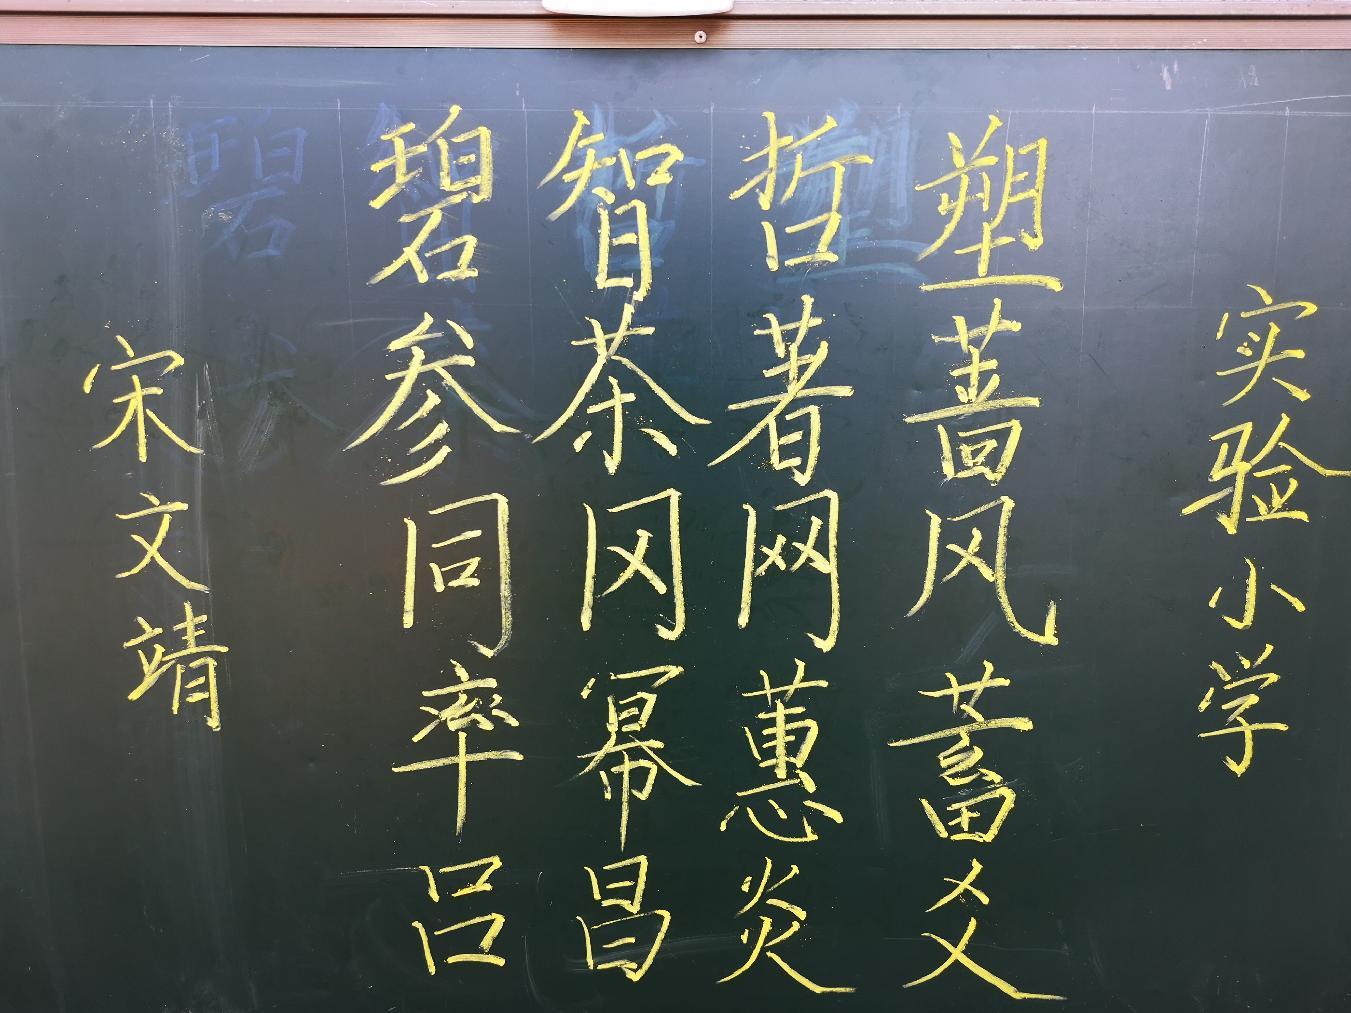 实验小学
塑蔷风蓄爻
哲著网蕙炎
智茶冈幂昌
碧参同率吕
宋文靖